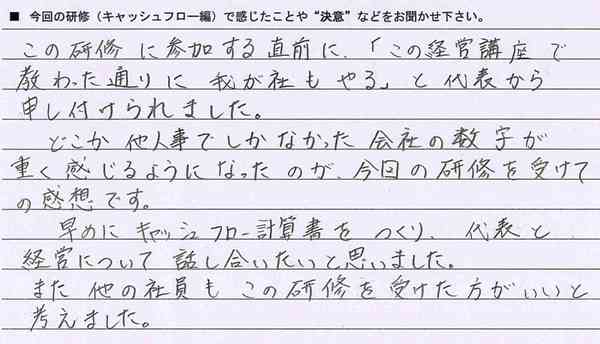 ■ 今回の研修（キャッシュフロー編）で感じたことや“決意”などをお聞かせ下さい。
この研修に参加する直前に、「この経営講座で
教わった通りに 我が社もやる」と代表から
申し付けられました。
どこか他人事でしかなかった会社の数字が
重く感じるようになったのが、今回の研修を受けて
の感想です。
早めにキャッシュフロー計算書をつくり、代表と、
経営について話し合いたいと思いました。
また他の社員もこの研修を受けた方がいいと
考えました。